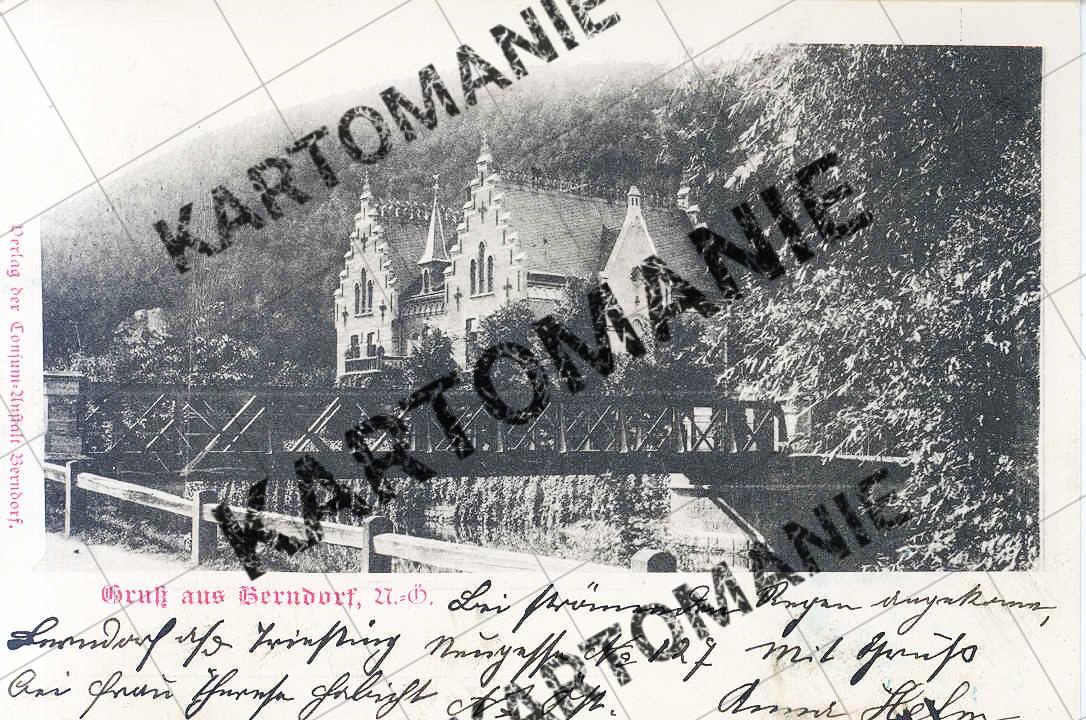 KARTOMANIE
KARTOMANIE
KARTOMANIE
KARTOMANIE
Verlag der Consum-Anstalt Berndorf.
Gruß aus Berndorf, N.-Ö.
Bei strömenden Regen angekomen,
Berndorf a/d Triesting Neugasse No 127 Mit Gruß
bei Frau Therese Anna